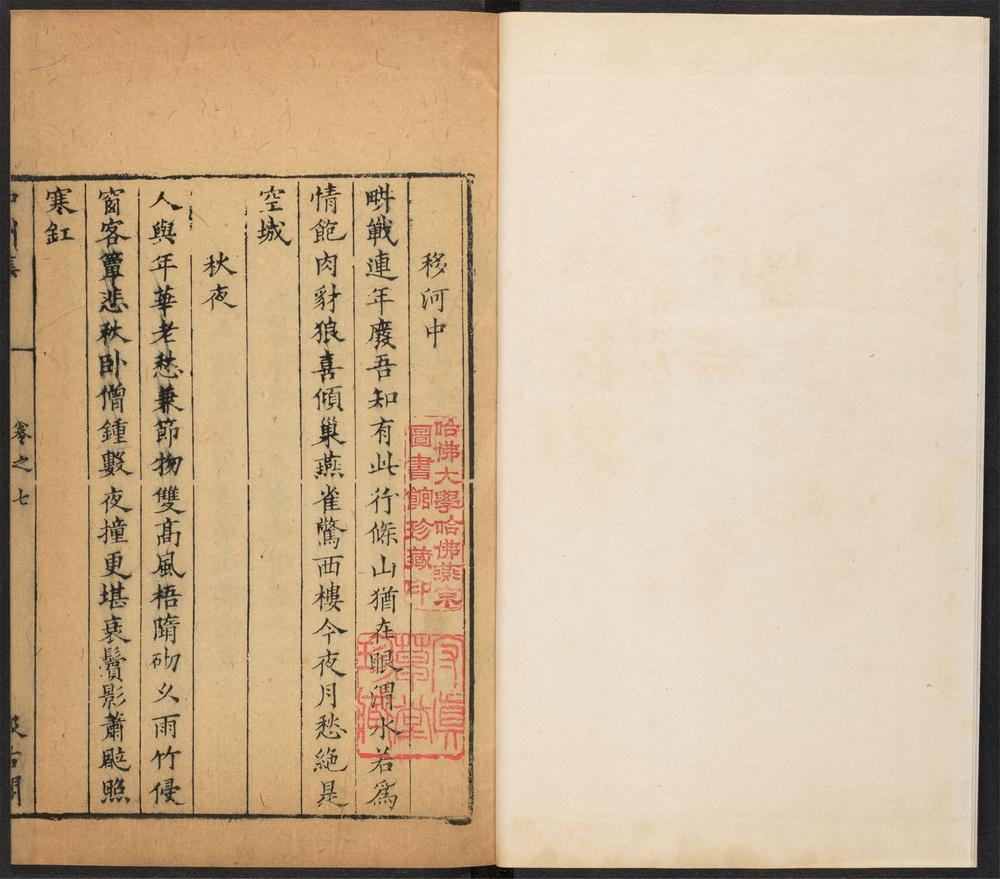 移河中
畊戰連年廢吾知有此行條山猶在眼渭水若爲
情飽肉豺狼喜傾巢燕雀驚西樓今夜月愁絶是
空城
秋夜
人與年華老愁兼節物雙高風梧隋砌久雨竹侵
窗客簟悲秋卧僧鍾數夜撞更堪衰鬢影蕭颼照
寒釭
卷之七
哈佛大學哈佛燕京
圖書館珍藏印
守眞
草堂
珍藏